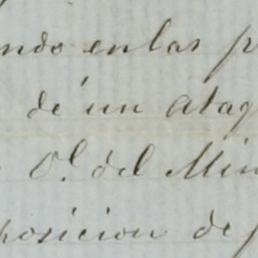 ndo en las p
de un ataq
Ol. del Min
posicion de